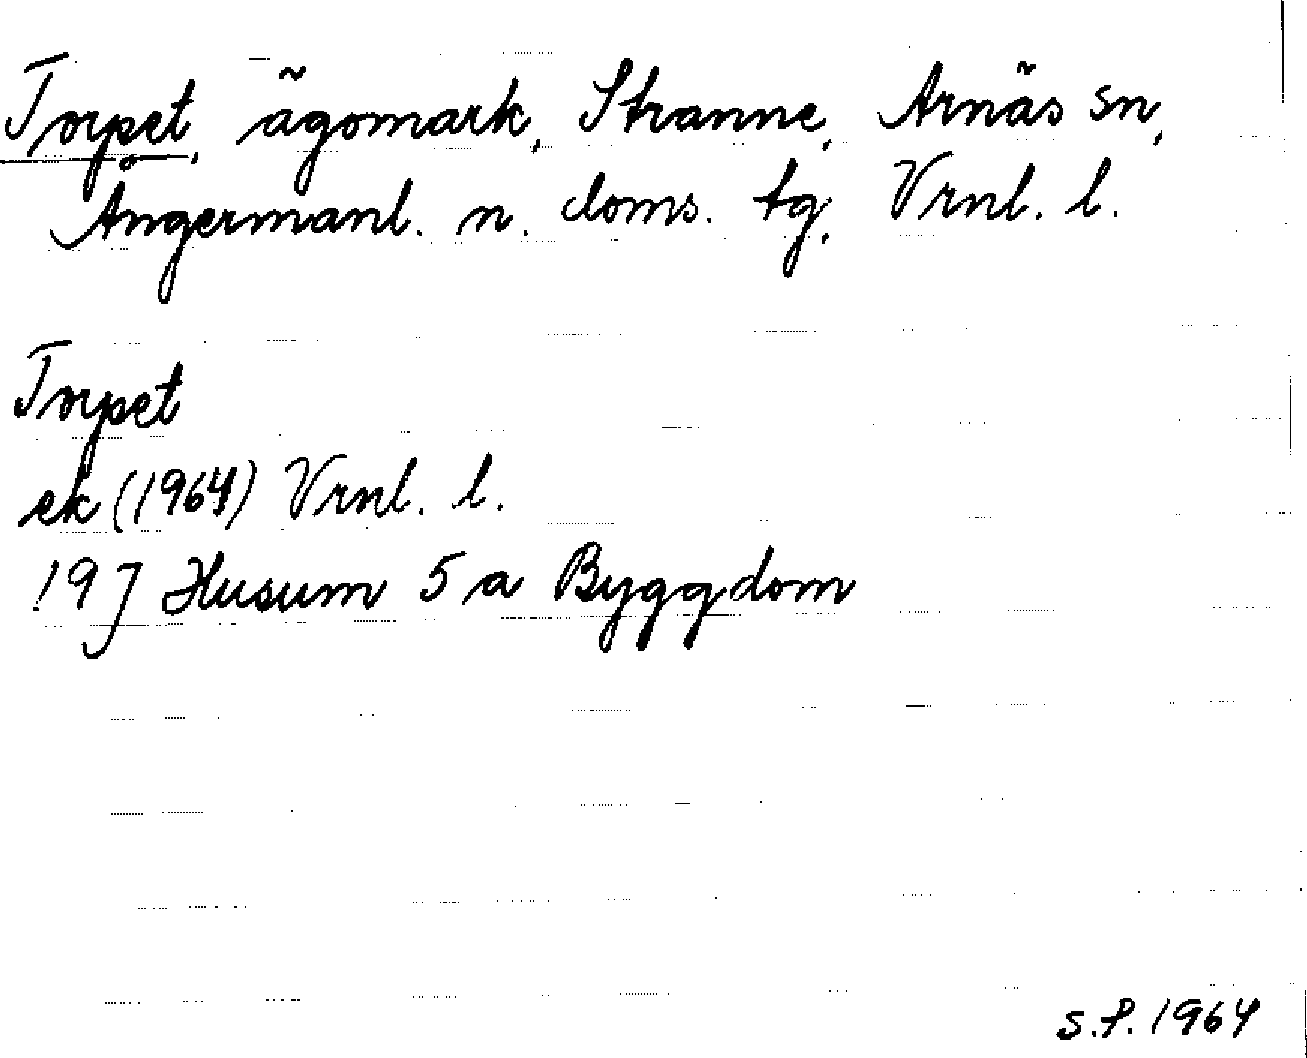 Torpet, ägomark, Stranne, Arnäs sn,
Ångermanl. n. doms. tg, Vrnl. l.
Torpet
ek (1964) Vrnl. l.
19 J Husum 5 a Byggdom
S.P. 1964